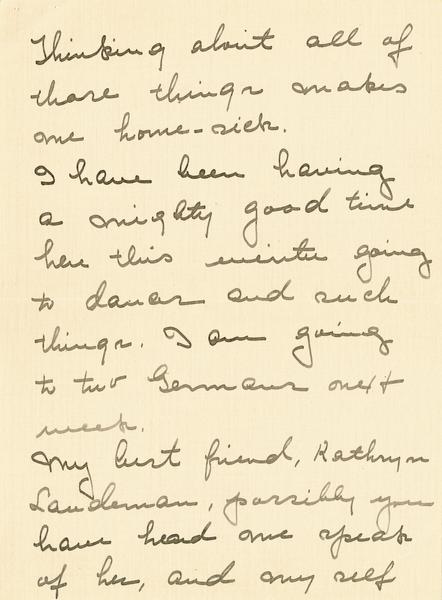 Thinking about all of
those things makes
me home-sick.
I have been having
a mighty good time
here this winter going
to dances and such
things. I am going
to two Germans next
week.
My best friend, Kathryn
Laudeman, possibly you
have heard me speak
of her, and my self